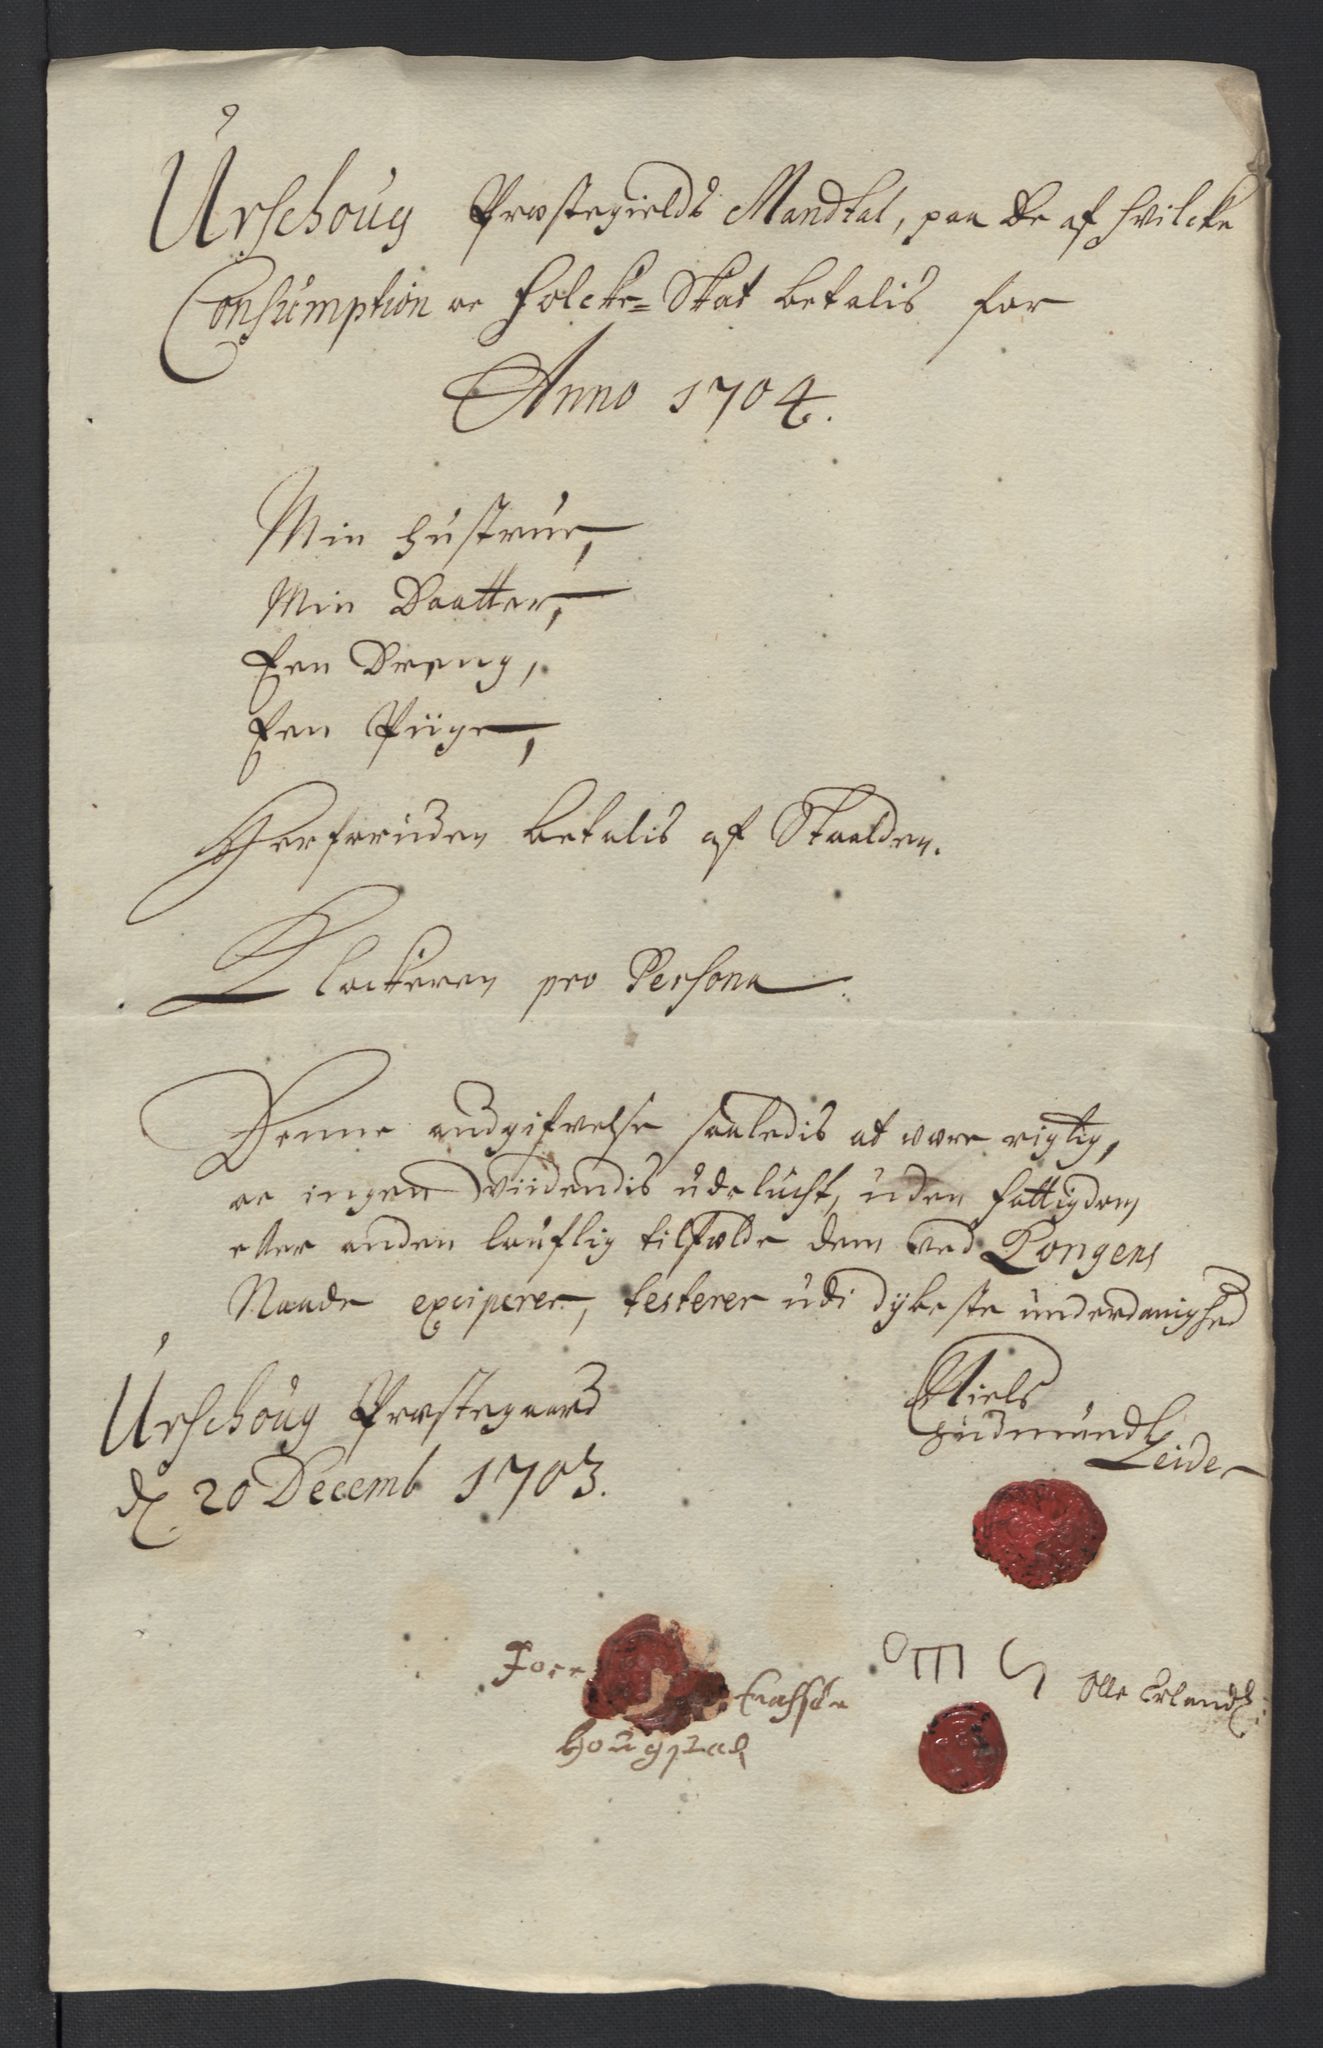 Urschoug Præstegields Mandtal, paa de af hvilcke
Consumption oc Folcke-Skat betalis for
Anno 1704.
Min Hustrue,
Min Daatter,
Een Dreng,
Een Piige,
Herforuden betalis af Staalden.
Klockeren pro Persona
Denne andgifvelse saaledis at være rigtig,
oc ingen viidendis udelucht, uden fattigdom
eller anden lauflig tilfælde dem ved Kongens
Naade exciperer, testerer udi dybeste underdanighed
Urschoug Præstegaard
d. 20 Decemb 1703.
Niels
Gudmunds
Leide
Joen
Enersøn
Hougstad
O E S Olle Erlands: